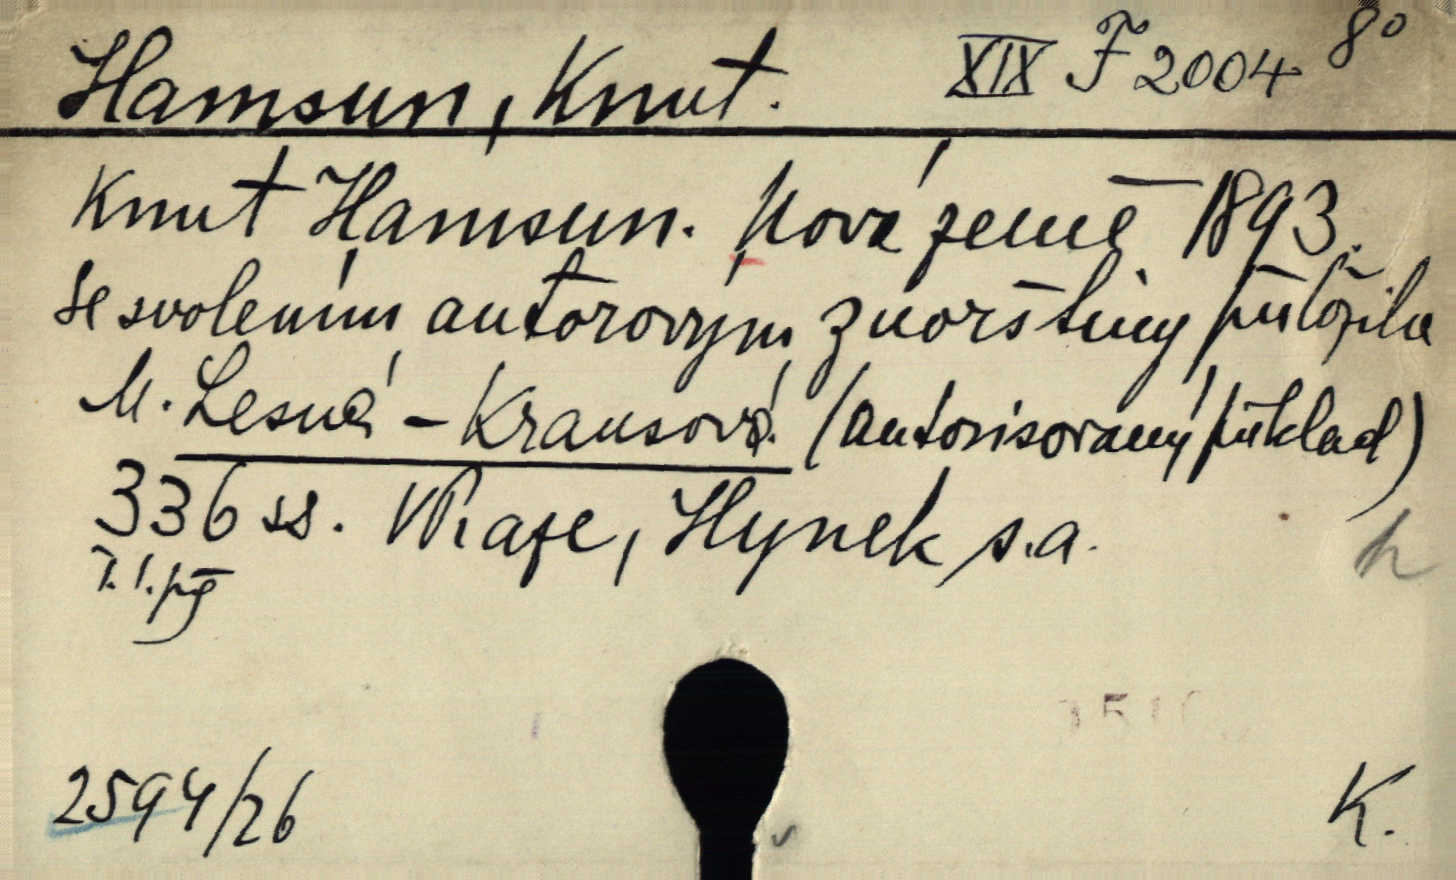 Hamsun, Knut. XIX F 2004 8°
Knut Hamsun. Nová země 1893.
Se svolením autorovým z norštiny přeložila
M. Lesná-Krausová. (Autorisovaný překlad)
336 ss. V Praze, Hynek s.a.
2594/26
K.